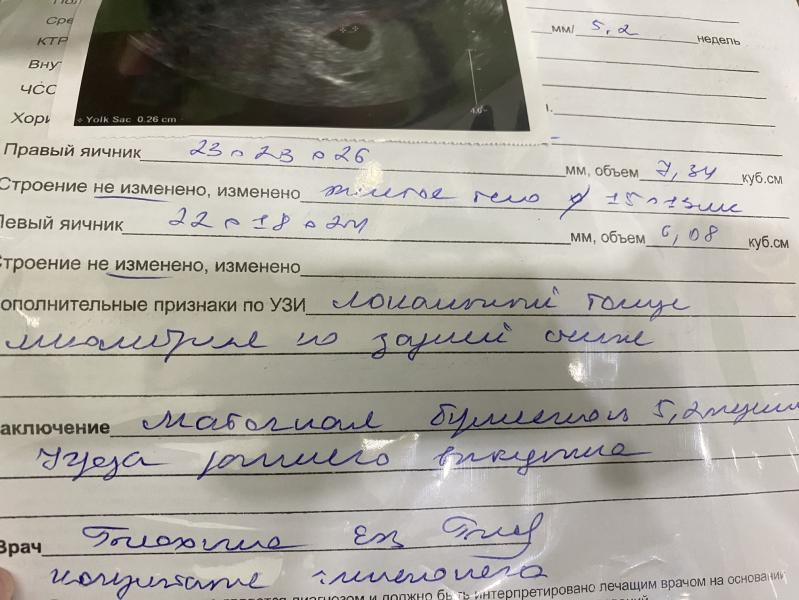 Сре
мм/ 5,2 недель
КТР
Вну
ЧСС
Хори
Yolk Sac 0.26 cm
4.6
Правый яичник 23 23 26 мм, объем 7,34 куб.см
Строение не изменено, изменено желтое тело 15 13мм
Левый яичник 22 18 24 мм, объем 6,08 куб.см
Строение не изменено, изменено
ополнительные признаки по УЗИ локальный тонус
миометрия по задней стенке
аключение Маточная беременность 5,2 недели
Угроза раннего выкидыша
Врач
консультация гинеколога
является диагнозом и должно быть интерпретировано лечащим врачом на основании